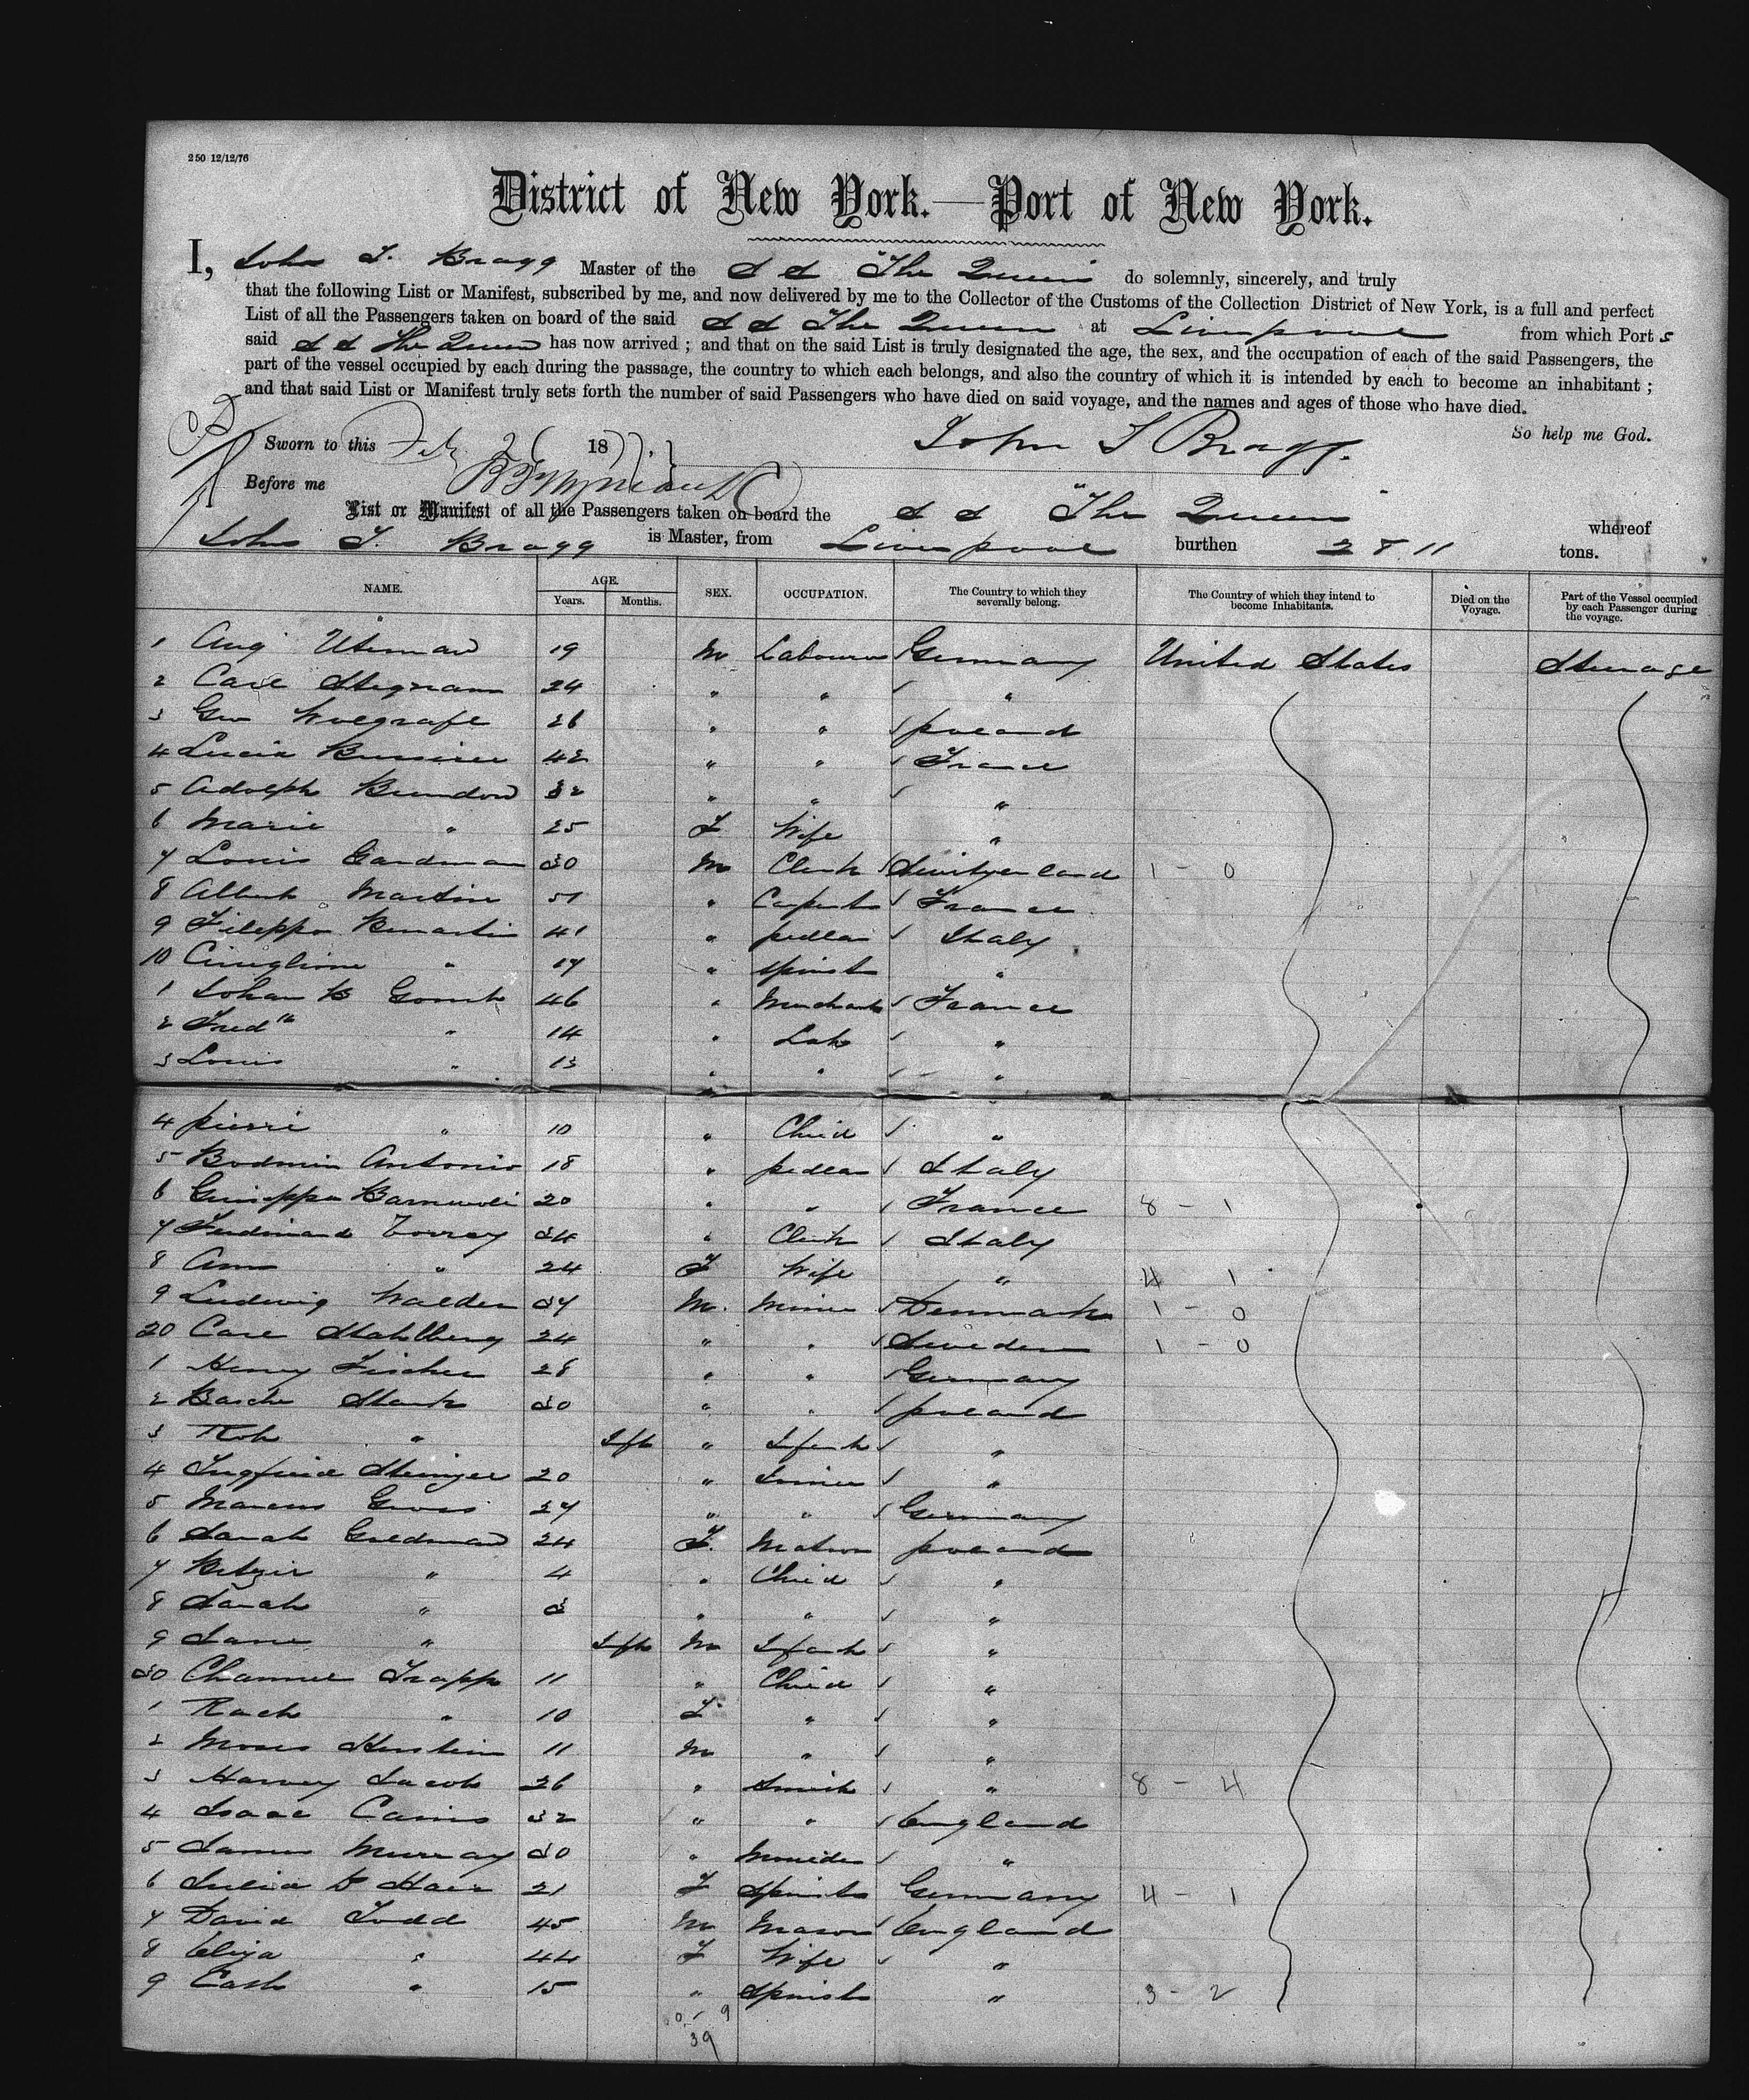 250 12/12/76
District of New York.—Port of New York.
I, John T. Bragg Master of the S S "The Queen" do solemnly, sincerely, and truly
that the following List or Manifest, subscribed by me, and now delivered by me to the Collector of the Customs of the Collection District of New York, is a full and perfect
List of all the Passengers taken on board of the said S S The Queen at Liverpool from which Port
said S S The Queen has now arrived ; and that on the said List is truly designated the age, the sex, and the occupation of each of the said Passengers, the
part of the vessel occupied by each during the passage, the country to which each belongs, and also the country of which it is intended by each to become an inhabitant ;
and that said List or Manifest truly sets forth the number of said Passengers who have died on said voyage, and the names and ages of those who have died.
So help me God.
Sworn to this Feb 26 1877. John T Bragg.
Before me
List or Manifest of all the Passengers taken on board the S S "The Queen" whereof
John T. Bragg is Master, from Liverpool burthen 2811 tons.
NAME. AGE. Years. Months. SEX. OCCUPATION. The Country to which they severally belong. The Country of which they intend to become Inhabitants. Died on the Voyage. Part of the Vessel occupied by each Passenger during the voyage.
1 Aug 19 M Labourer Germany United States Steerage
2 Carl Stegnam 24 " " "
3 Geo Wolgrafe 26 " " Poland
4 Lucia 42 " " France
5 Adolph 32 " " "
6 Marie " 25 F Wife "
7 Louis Gardman 30 M Clerk Switzerland 1 - 0
8 Albert Martin 51 " Carpentr France
9 Fileppo 41 " pedlar Italy
10 " 17 " Spinstr "
1 Johan B 46 " Merchant France
2 Fredk " 14 " Labr "
3 Louis " 13 " " "
4 Pierri " 10 " Child "
5 Antonio 18 " pedlar Italy
6 Guiseppe 20 " " France 8 - 1
7 Ferdinand Torrey 34 " Clerk Italy
8 Ann " 24 F Wife " 4 1
9 Ludwig Walden 37 M. Miner Denmark 1 - 0
20 Carl Stahlberg 24 " " Sweden 1 - 0
1 Henry Fischer 28 " " Germany
2 Basche Stark 30 " " Poland
3 Roh " Inft " Infant "
4 20 " "
5 Marcus Gross 27 " " Germany
6 Sarah Goldman 24 F. Matron Poland
7 " 4 " Child "
8 Sarah " 3 " " "
9 " Inft M Infant "
30 Trapp 11 " Child "
1 Rach " 10 F " "
2 Moses 11 M " "
3 Harvey Jacob 26 " Smith " 8 - 4
4 Isaac Cains 32 " " England
5 James Murray 30 " Moulder "
6 Julia 21 F Spinstr Germany 4 - 1
7 David Todd 45 M Mason England
8 Eliza " 44 F Wife "
9 Cath " 15 " Spinstr " 3 - 2
39